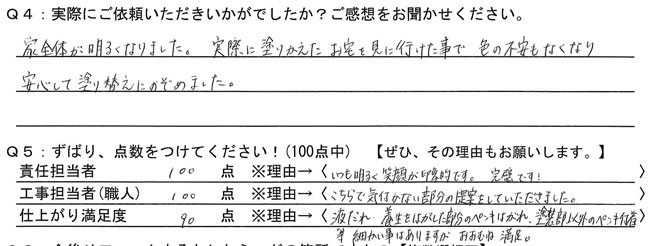 Q4：実際にご依頼いただきいかがでしたか？ご感想をお聞かせください。
家全体が明るくなりました。実際に塗りかえたお宅を見に行けた事で色の不安もなくなり
安心して塗り替えにのぞめました。
Q5：ずばり、点数をつけてください！(100点中) 【ぜひ、その理由もお願いします。】
責任担当者 100 点 ※理由→〈いつも明るく笑顔が印象的です。完璧です！〉
工事担当者(職人) 100 点 ※理由→〈こちらで気付かない部分の提案をしていただきました。〉
仕上がり満足度 90 点 ※理由→〈液だれ、養生をはがした部分のペンキはがれ、塗装部以外のペンキ付着〉
等 細かい事はありますが おおむね 満足。